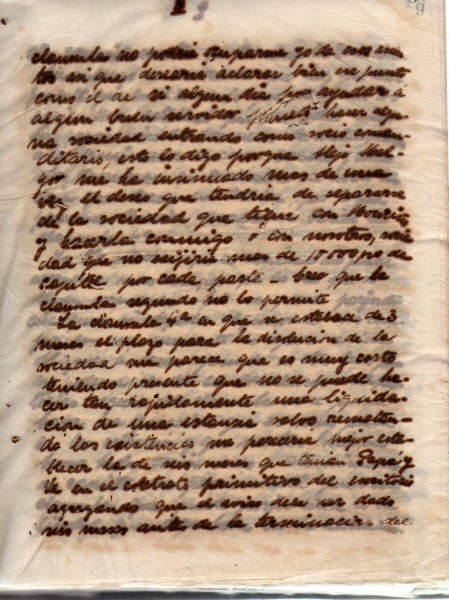 clausulas no podría ocuparme yo de esos asun
tos asi que desearia aclarar bien ese punto
como el de si algun dia por ayudar á
algun buen servidor quisiera hacer algu
na sociedad entrando como socio coman
ditario, esto lo digo porque Alejo
me ha insinuado mas de una
vez el deseo que tendria de separarse
de la sociedad que tiene con
y hacerla conmigo ó con nosotros, socie
dad que no exijiria mas de 10000 ps de
capital por cada parte. Creo que la
clausula segunda no lo permite
La clausula 4ª en que se establece de 3
meses el plazo para la disolucion de la
sociedad me parece que es muy corto
teniendo presente que no se puede ha
cer tan rapidamente una liquida
cion de una estancia salvo rematan
do las existencias me pareceria mejor esta
blecer la de seis meses que tenian Papá y
Vd en el contrato primitivo del escritorio
agregando que el aviso debe ser dado
seis meses antes de la terminacion del